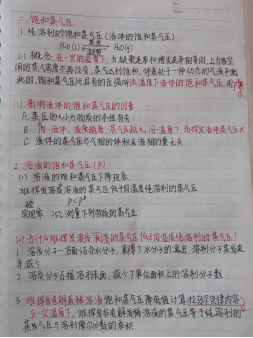 二. 饱和蒸气压
1. 纯溶剂的饱和蒸气压 (液体的饱和蒸气压)
H₂O(l) 蒸发 凝聚 H₂O(g)
(1) 概念: 在一定的温度下, 当蒸发速率和凝聚速率相等时, 上方空
间的蒸气密度不再改变, 蒸气达到饱和, 体系处于一种动态的气液平衡
此时, 饱和蒸气所具有的压强叫该温度下液体的饱和蒸气压, 用P*表示
(2). 影响液体的饱和蒸气压的因素
A. 蒸气压的大小与物质的本性有关
B. 同一液体, 温度越高, 蒸气压越大, 同一温度下, 易挥发液体蒸气压大
C. 液体的蒸气压与气相的体积及液相的量无关.
2. 溶液的饱和蒸气压 (P)
(1) 溶液的饱和蒸气压下降现象
难挥发溶质溶液的蒸气压低于同温度纯溶剂的蒸气压
P<P*
25℃ 测量下列物质的蒸气压
(2) 为什么难挥发溶质溶液的蒸气压低于同温度纯溶剂的蒸气压?
1. 溶质分子一方面结合水分子, 束缚了水分子的逸出, 溶剂分子蒸发速
率减小
2. 溶质分子占据溶剂表面, 减少了单位面积上的溶剂分子数
3. 难挥发非电解质稀溶液饱和蒸气压降低值计算: 拉乌尔定律内容
在一定温度下, 难挥发非电解质稀溶液的蒸气压等于纯溶剂的
蒸气压与溶剂摩尔分数的乘积